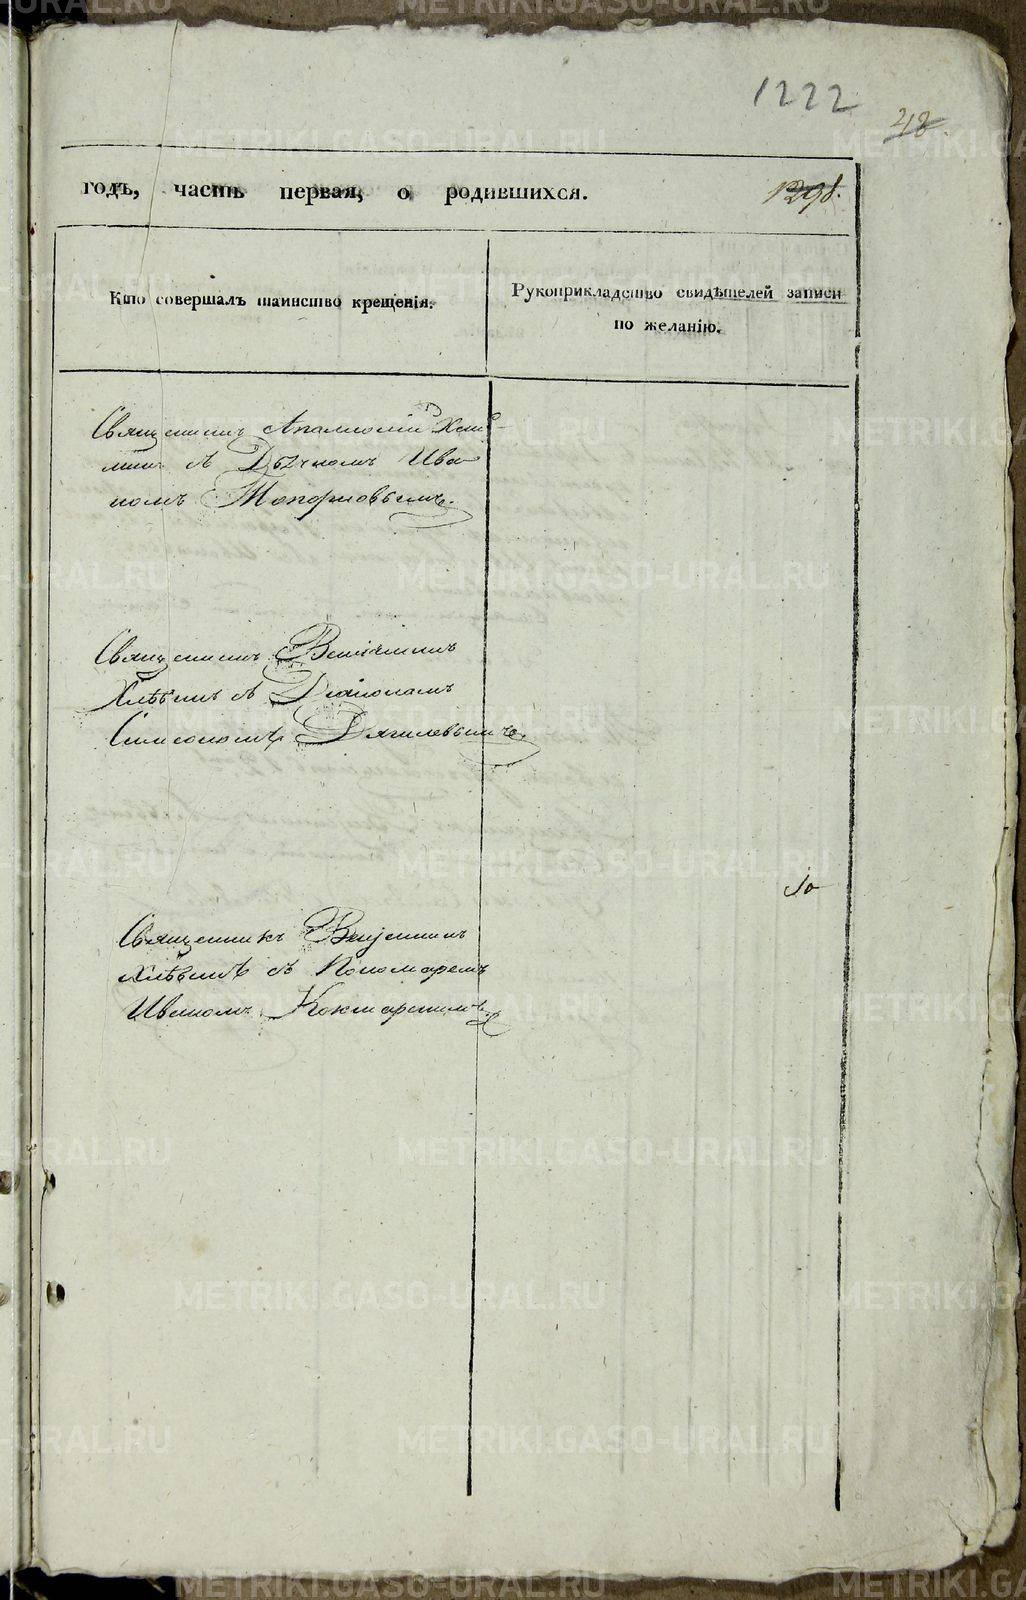 1222
48.
годъ, часть первая, о родившихся.
1298.
Кто совершалъ таинство крещенія.
Рукоприкладство свидѣтелей записи
по желанію.
Священникъ Аполлоній
съ Дьячкомъ Ива
номъ Топорковымъ.
Священникъ Веніаминъ
Хлѣбинъ съ Діакономъ
Симеономъ Дягилевымъ.
Священникъ Веніаминъ
Хлѣбинъ съ Пономаремъ
Иваномъ Кокшаринымъ
METRIKI.GASO-URAL.RU